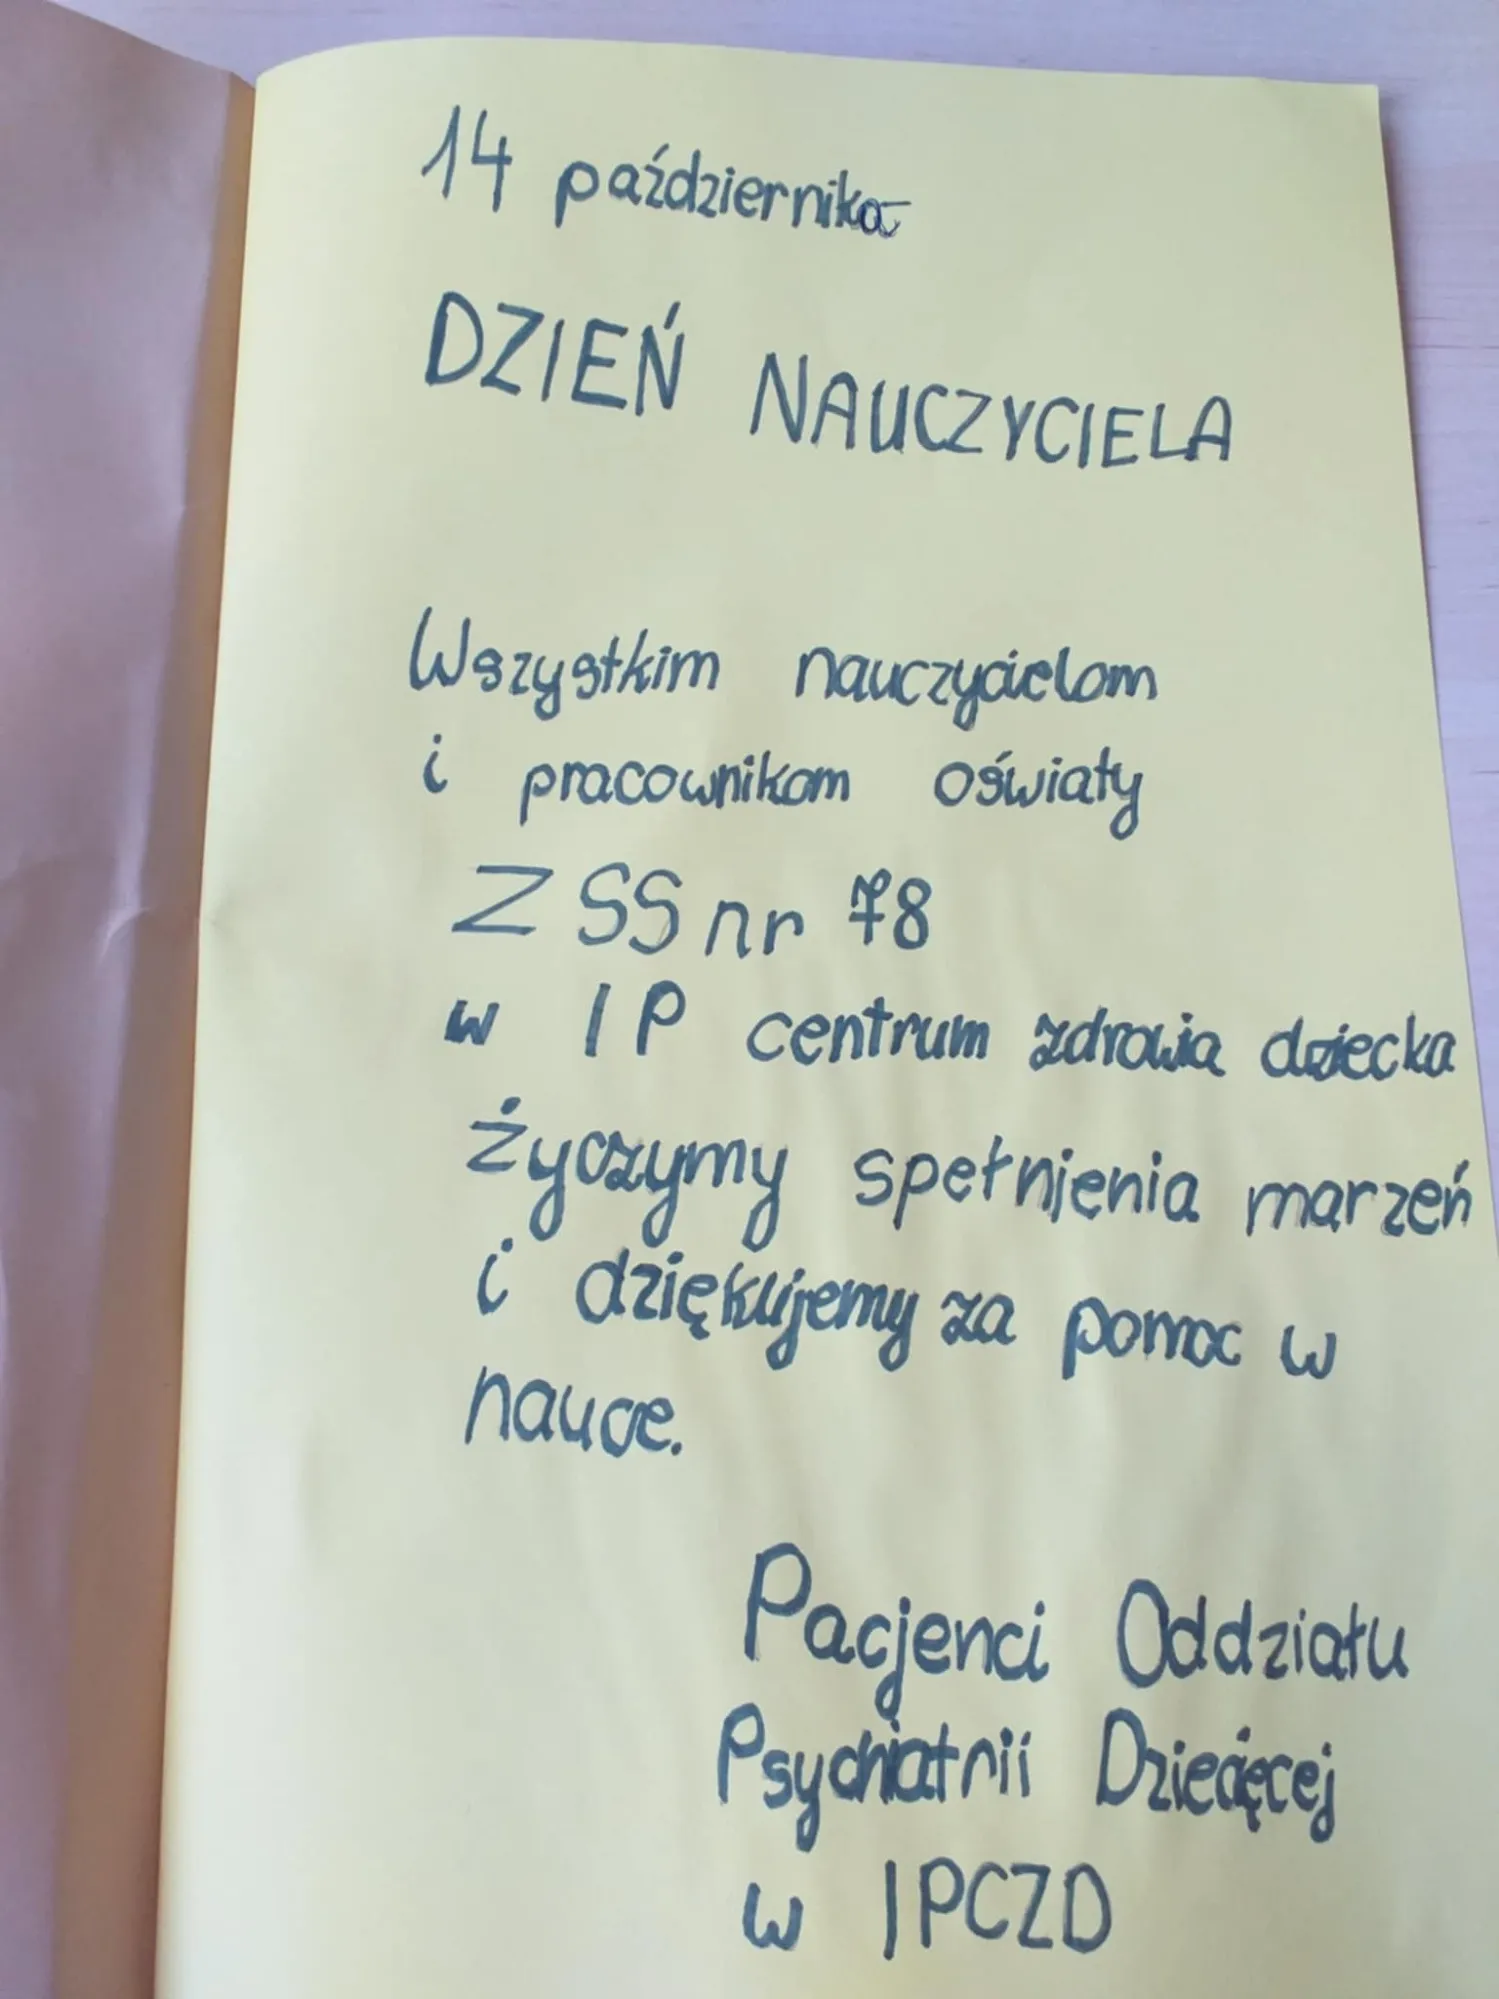 14 października
DZIEŃ NAUCZYCIELA
Wszystkim nauczycielom
i pracownikom oświaty
Z SS nr 78
w IP centrum zdrowia dziecka
życzymy spełnienia marzeń
i dziękujemy za pomoc w
nauce.
Pacjenci Oddziału
Psychiatrii Dziecięcej
w IPCZD